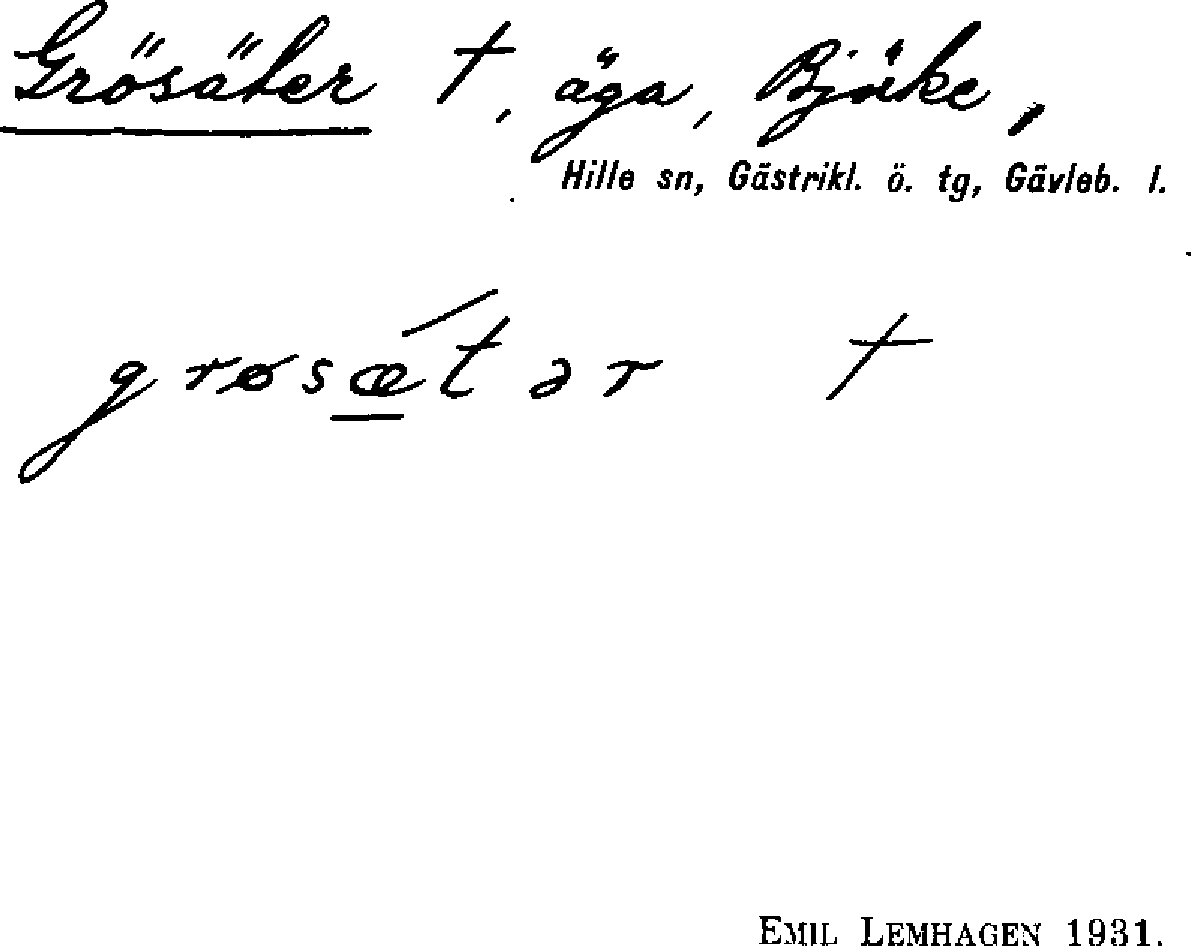 Grösäter †, äga, Björke,
Hille sn, Gästrikl. ö. tg, Gävleb. l.
grøsǽtər †
EMIL LEMHAGEN 1931.